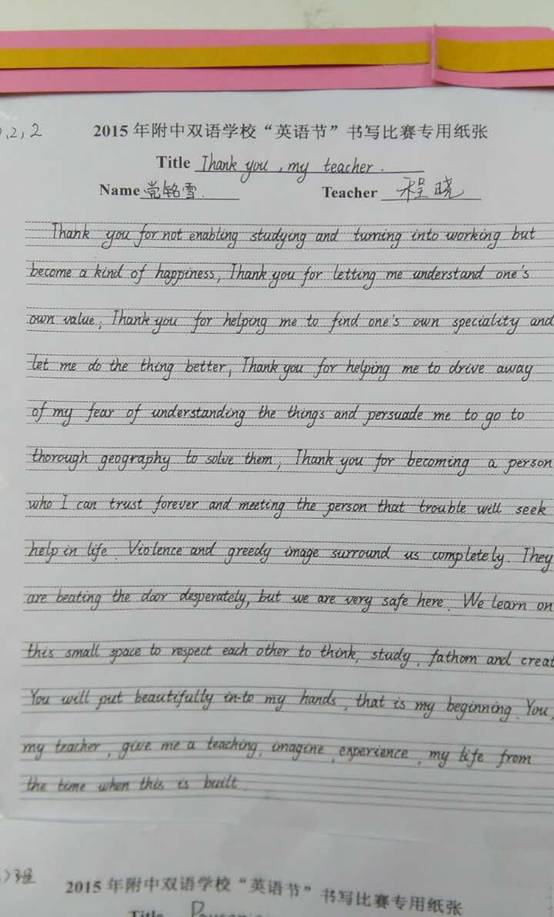 2,2
2015年附中双语学校“英语节”书写比赛专用纸张
Title Thank you, my teacher.
Name 党铭雪 Teacher 程晓
Thank you for not enabling studying and turning into working but
become a kind of happiness, Thank you for letting me understand one's
own value, Thank you for helping me to find one's own speciality and
let me do the thing better, Thank you for helping me to drive away
of my fear of understanding the things and persuade me to go to
thorough geography to solve them, Thank you for becoming a person
who I can trust forever and meeting the person that trouble will seek
help in life. Violence and greedy image surround us completely. They
are beating the door desperately, but we are very safe here. We learn on
this small space to respect each other to think, study, fathom and creat
You will put beautifully in-to my hands, that is my beginning. You,
my teacher, give me a teaching, imagine, experience, my life from
the time when this is built.
2015年附中双语学校“英语节”书写比赛专用纸张
Title